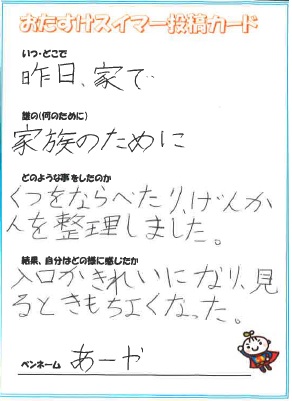 おたすけスイマー投稿カード
いつ・どこで
昨日、家で
誰の(何のために)
家族のために
どのような事をしたのか
くつをならべたり、げんか
んを整理しました。
結果、自分はどの様に感じたか
入口がきれいになり、見
るときもちよくなった。
ペンネーム あーや